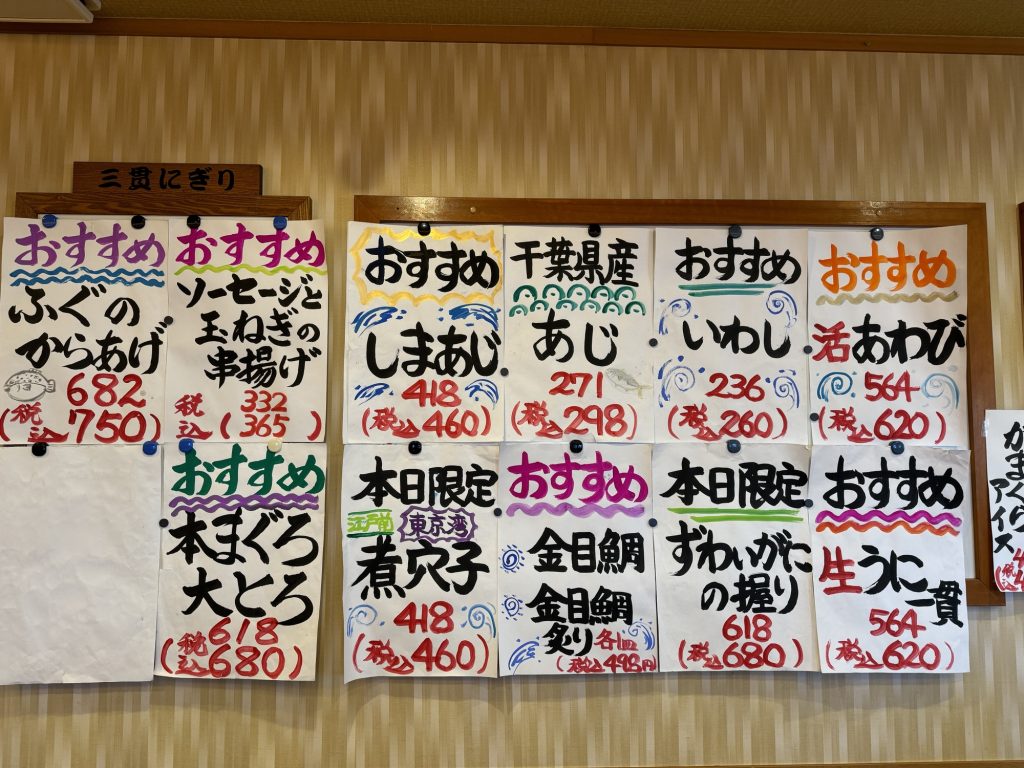 三貫にぎり
おすすめ
ふぐの
からあげ
682
(税込750)
おすすめ
ソーセージと
玉ねぎの
串揚げ
332
(税込365)
おすすめ
しまあじ
418
(税込460)
千葉県産
あじ
271
(税込298)
おすすめ
いわし
236
(税込260)
おすすめ
活あわび
564
(税込620)
おすすめ
本まぐろ
大とろ
618
(税込680)
本日限定
江戸前 東京湾
煮穴子
418
(税込460)
おすすめ
金目鯛
金目鯛
炙り 各1皿
(税込498円)
本日限定
ずわいがに
の握り
618
(税込680)
おすすめ
生うに一貫
564
(税込620)
かまくら
アイス